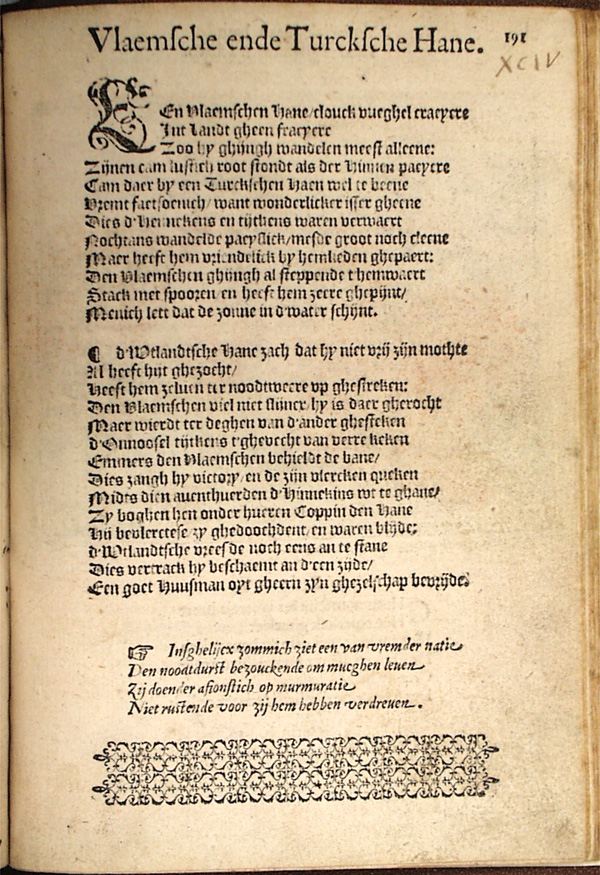 Vlaemsche ende Turcksche Hane. 191
XCIV
EEn Vlaemschen Hane/clouck vueghel eraeyere
Int Landt gheen fraeyere
Zoo hy ghijngh wandelen meest alleene:
Zijnen cam lustich root stondt als der Hinnen paeyere
Cam daer by een Turckschen Haen wel te beene
Vremt faetsoenich/want wonderlicker isser gheene
Dies d'Hennekens en tijtkens waren verwaert
Nochtans wandelde paeyslick/mesde groot noch cleene
Maer heeft hem vriendelick by hemlieden ghepaert:
Den Vlaemschen ghijngh al steppende t'hemwaert
Stack met spooren/en heeft hem zeere ghepijnt/
Menich lett dat de zonne in d'water schijnt.
¶ d'Wtlandtsche Hane zach dat hy niet vrij zijn mochte
Al heeft hijt ghezocht/
Heeft hem zeluen ter noodtweere vp ghestreken:
Den Vlaemschen viel niet slijuer/hy is daer gherocht
Maer wierdt ter deghen van d'ander ghesteken
d'Onnoosel tijtkens t'ghevecht van verre keken
Emmers den Vlaemschen behieldt de bane/
Dies zangh hy victory/en de zijn vlercken queken
Midts dien aventhuerden d'Hinnekins wt te ghane/
Zy boghen hen onder hueren Coppin den Hane
Hij beulerctese zy ghedoochdent/en waren blijde:
d'Wtlandtsche vreesde noch eens an te stane
Dies vertrack hy beschaemt an d'een zijde/
Een goet Huusman oyt gheern zyn ghezelschap bevrijde.
☞ Insghelijcx zommich ziet een van vremder natie
Den nootdurst bezouckende om mueghen leuen
Zij doender afionstich op murmuratie
Niet rustende voor zij hem hebben verdreuen.